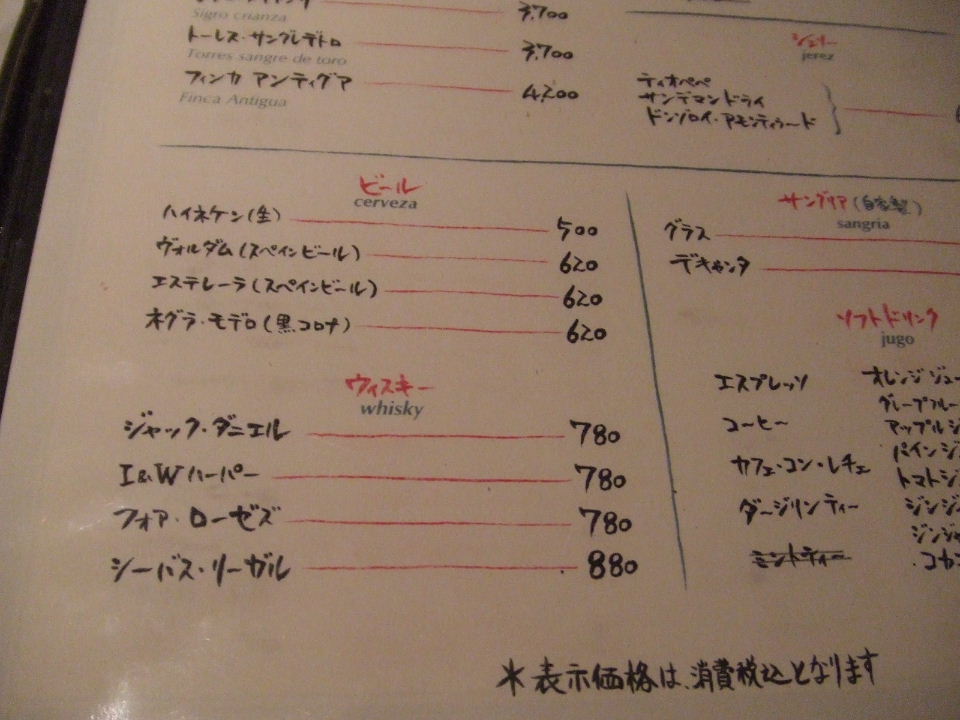 Sigro crianza
3,700
トーレス・サングレデトロ 3,700
Torres sangre de toro
フィンカ アンティグア 4,200
Finca Antigua
シェリー
jerez
ティオペペ
サンデマンドライ
ドンゾロイ・アモンティァード
ビール
cerveza
ハイネケン(生) 500
ヴォルダム(スペインビール) 620
エステレーラ(スペインビール) 620
ネグラ・モデロ(黒コロナ) 620
ウィスキー
whisky
ジャック・ダニエル 780
I&Wハーパー 780
フォア・ローゼズ 780
シーバス・リーガル 880
サングリア(自家製)
sangria
グラス
デキャンタ
ソフトドリンク
jugo
エスプレッソ
コーヒー
カフェ・コン・レチェ
ダージリンティー
ミントティー
オレンジジュー
グレープフルー
アップルジ
パインジ
トマトジ
ジンジ
ジンジャ
・コカコ
*表示価格は、消費税込となります